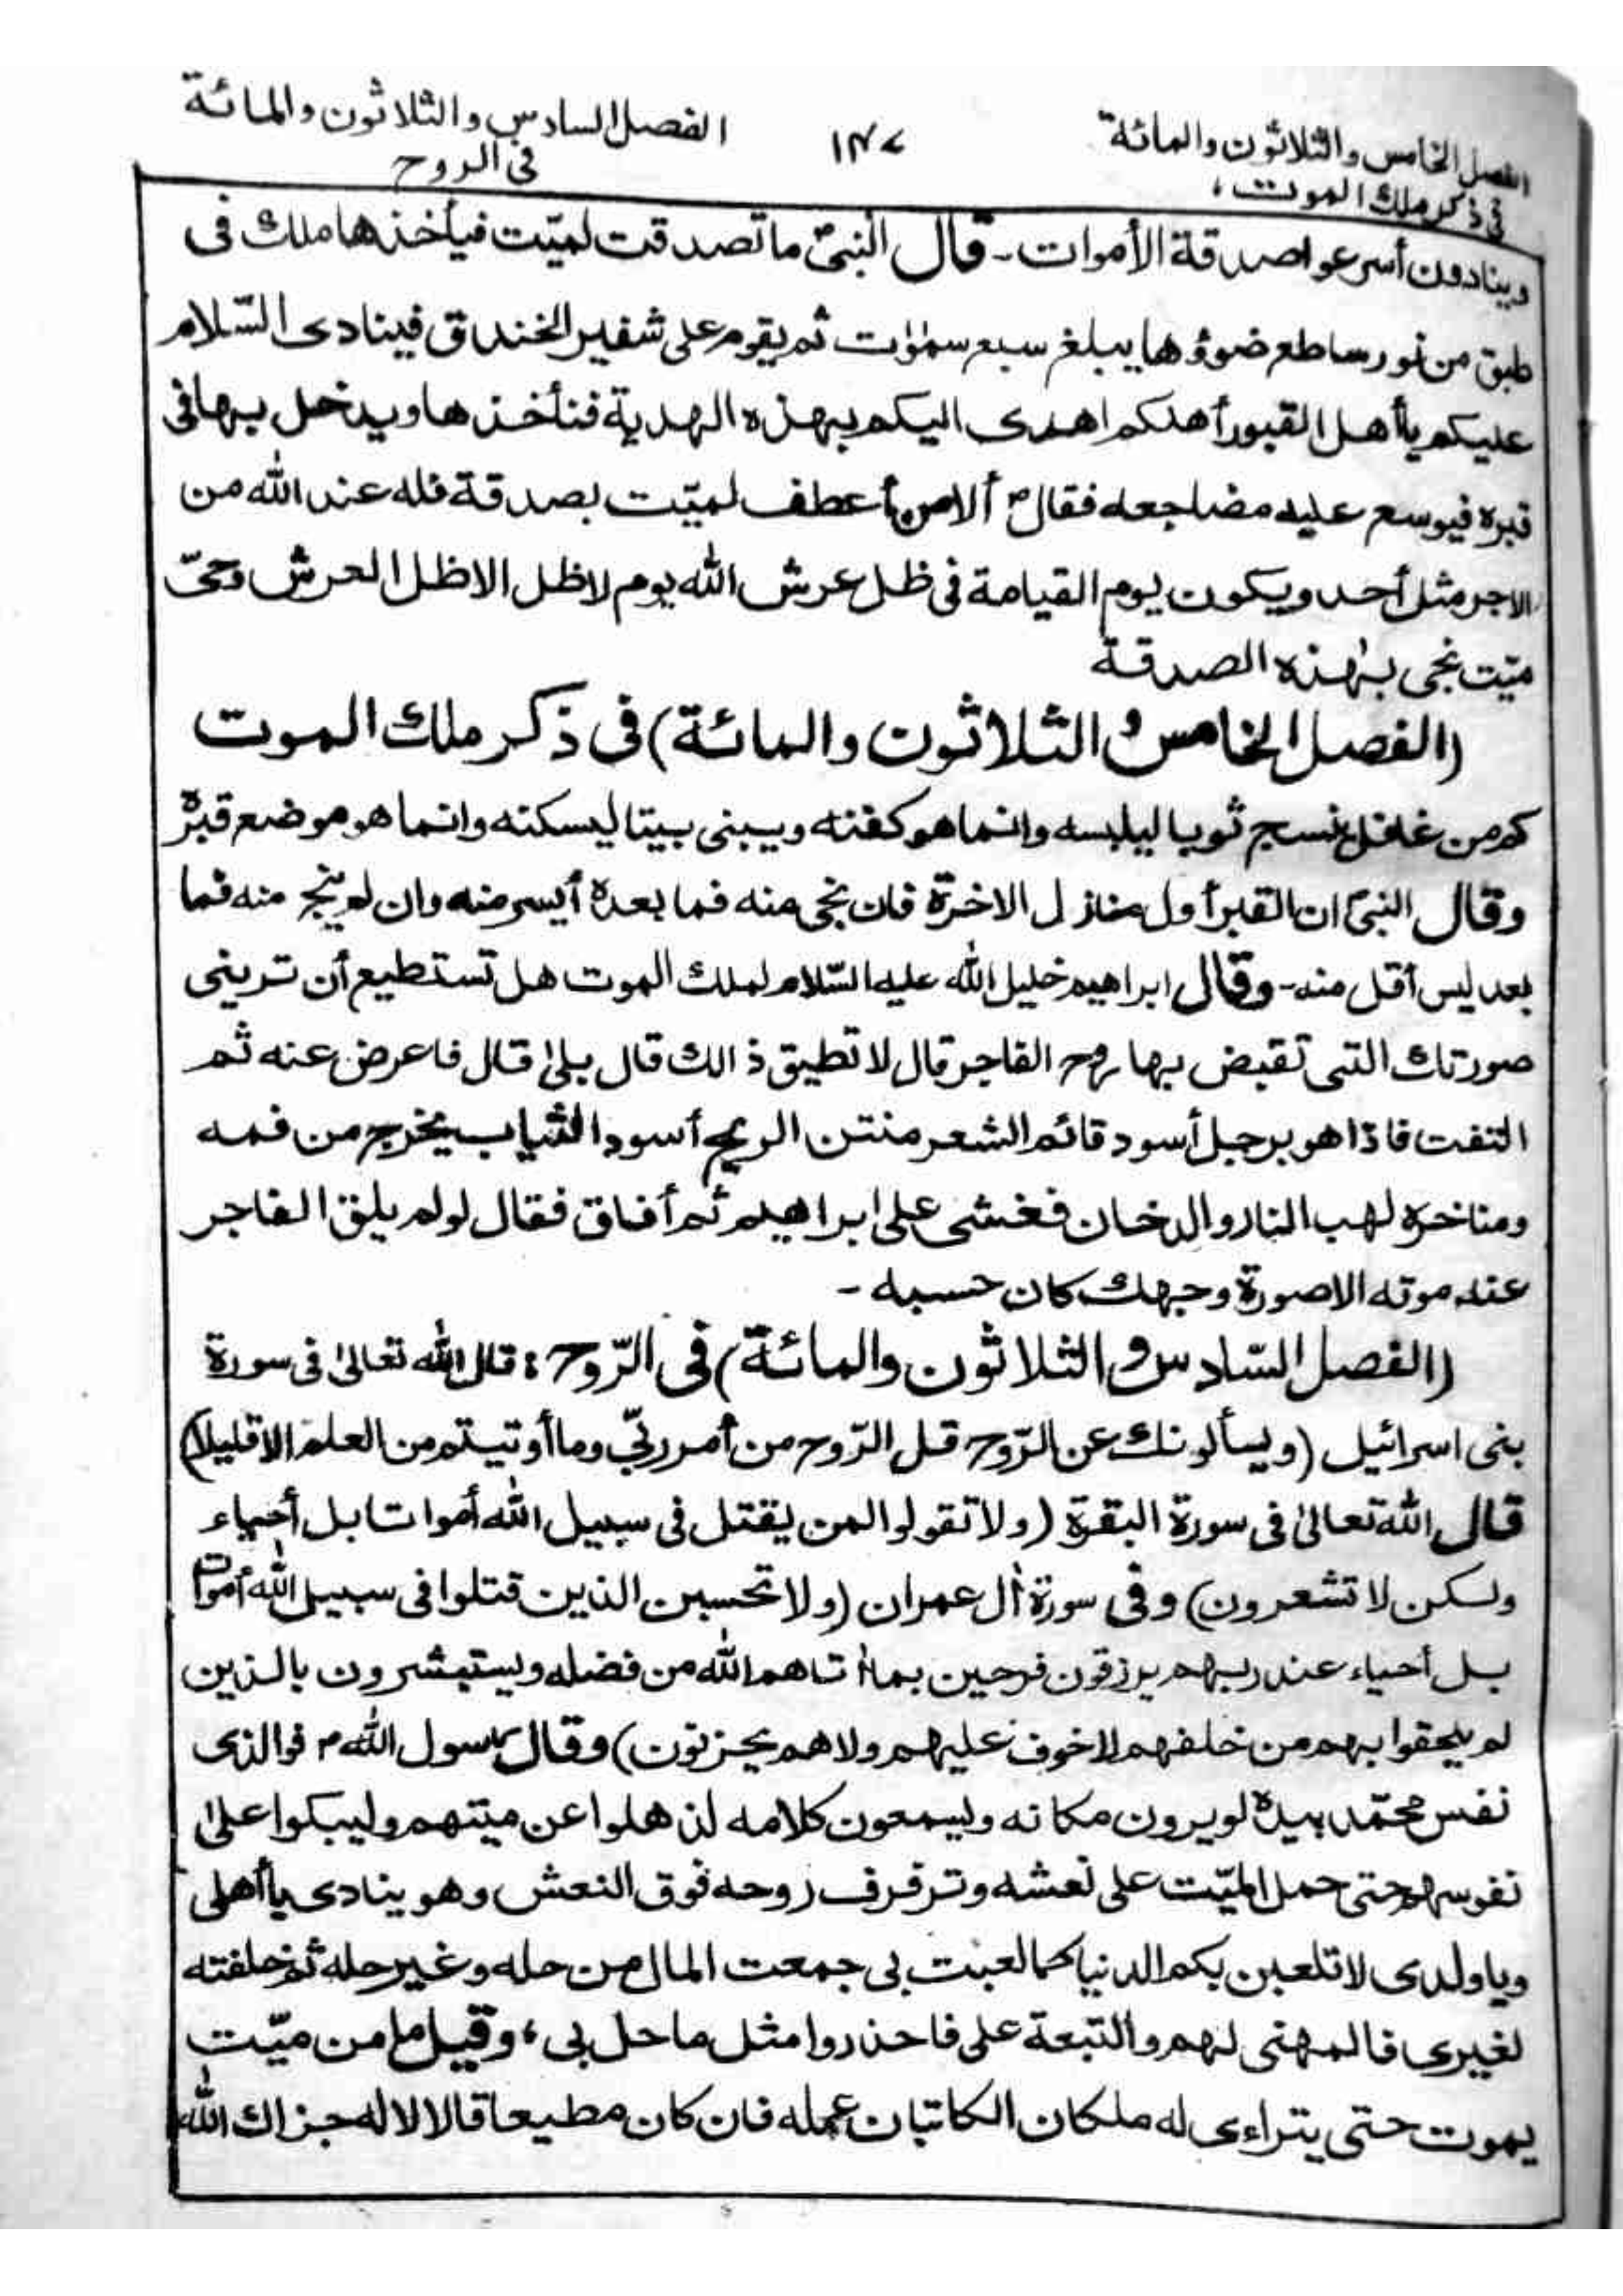 الفصل الخامس والثلاثون والمائة
في ذكر ملك الموت
١٣٧
الفصل السادس والثلاثون والمائة
فى الروح
وينادون أسرعوا صدقة الأموات - قال النبىؐ ما تصدقت لميّت فيأخذها ملك فى
طبق من نور ساطع ضوؤها يبلغ سبع سمٰوٰت ثم يقوم على شفير الخندق فينادى السّلام
عليكم يا أهل القبور أهلكم اهدى اليكم بهذه الهدية فنأخذها ويدخل بها فى
قبره فيوسع عليه مضاجعه فقالؐ ألا من أعطف لميّت بصدقة فله عند الله من
الاجر مثل أحد ويكون يوم القيامة فى ظل عرش الله يوم لا ظل الا ظل العرش وحىّ
ميّت نجى بهٰذه الصدقة
(الفصل الخامس و الثلاثون والمائة) فى ذكر ملك الموت
كم من غافل نسج ثوبا ليلبسه وانما هو كفنه ويبنى بيتا ليسكنه وانما هو موضع قبره
وقال النبىؐ ان القبر أول منازل الاخرة فان نجى منه فما بعده أيسر منه وان لم ينج منه فما
بعد ليس أقل منه - وقال ابراهيم خليل الله عليه السّلام لملك الموت هل تستطيع أن ترينى
صورتك التى تقبض بها روح الفاجر قال لا تطيق ذالك قال بلىٰ قال فاعرض عنه ثم
التفت فاذا هو برجل أسود قائم الشعر منتن الريح أسود الثياب يخرج من فمه
ومناخره لهب النار والدخان فغشى على ابراهيم ثم أفاق فقال لو لم يلق الفاجر
عند موته الا صورة وجهك كان حسبه -
(الفصل السّادس و الثلاثون والمائة) فى الرّوح : قال الله تعالىٰ فى سورة
بنى اسرائيل (ويسألونك عن الرّوح قل الرّوح من أمر ربّى وما أوتيتم من العلم الا قليلا)
قال الله تعالىٰ فى سورة البقرة (ولا تقولوا لمن يقتل فى سبيل الله أمواتا بل أحياء
ولكن لا تشعرون) وفى سورة أٰل عمران (ولا تحسبن الذين قتلوا فى سبيل الله أمواتا
بل أحياء عند ربهم يرزقون فرحين بما أٰتاهم الله من فضله ويستبشرون بالذين
لم يلحقوا بهم من خلفهم لا خوف عليهم ولا هم يحزنون) وقال رسول اللهؐ فوالذى
نفس محمّد بيده لو يرون مكانه ويسمعون كلامه لذهلوا عن ميتهم وليبكوا علىٰ
نفوسهم حتى حمل الميّت على نعشه وترفرف روحه فوق النعش وهو ينادى يا أهلى
ويا ولدى لا تلعبن بكم الدنيا كما لعبت بى جمعت المال من حله وغير حله ثم خلفته
لغيرى فالمهنى لهم والتبعة على فاحذروا مثل ما حل بى، وقيل ما من ميّت
يموت حتى يتراءى له ملكان الكاتبان عمله فان كان مطيعا قالا لا له جزاك الله